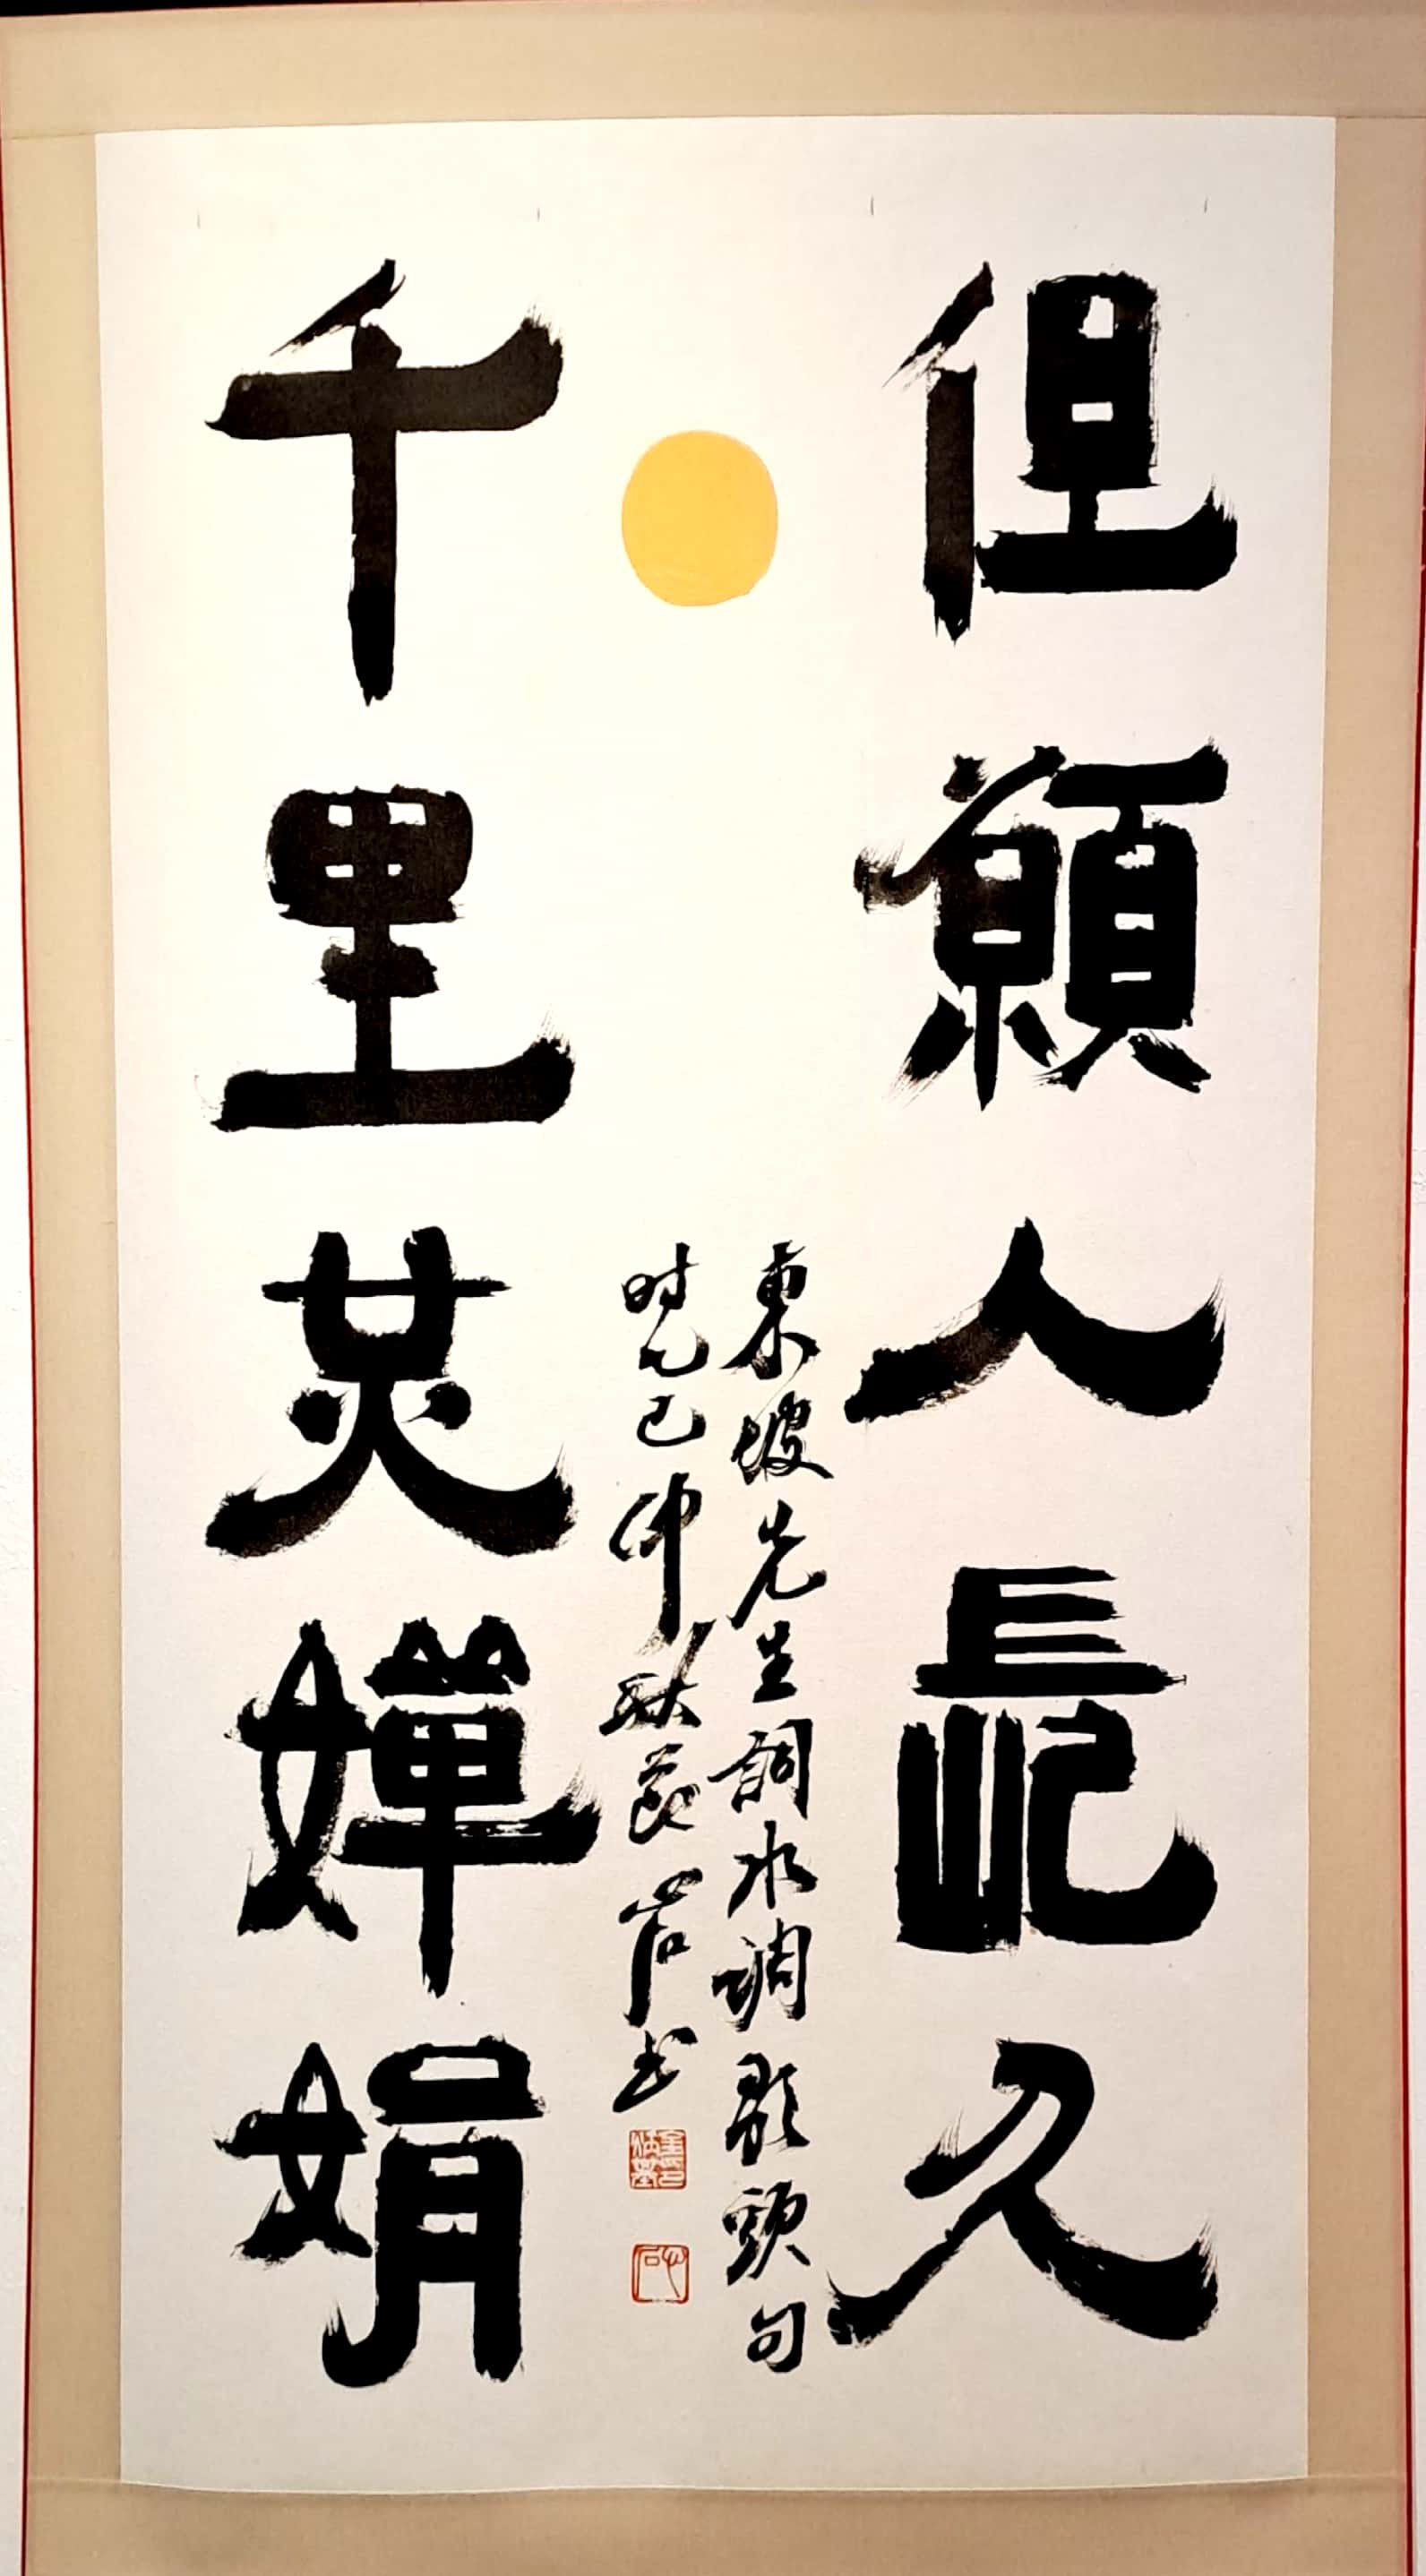 但願人長久
東坡先生詞水調歌頭句
時乙巳仲秋
千里共嬋娟